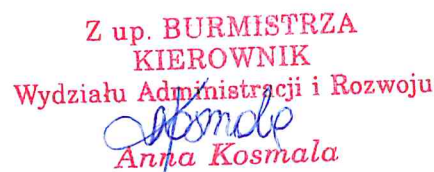 Z up. BURMISTRZA
KIEROWNIK
Wydziału Administracji i Rozwoju
AKosmala
Anna Kosmala